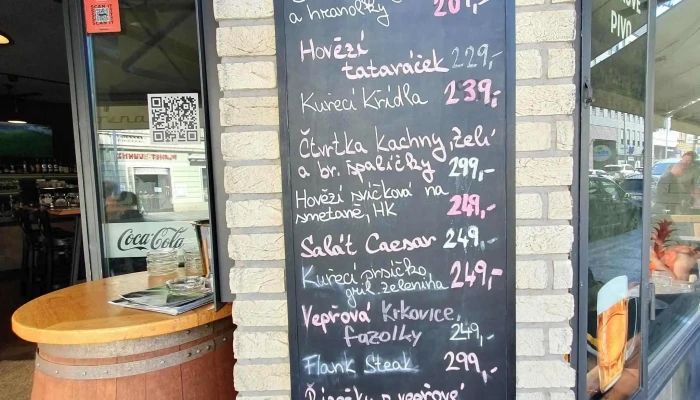 a hranolky 201,-
Hovězí
tataráček 229,-
Kuřecí Křídla 239,-
Čtvrtka kachny, zelí
a br. špalíčky 299,-
Hovězí svíčková na
smetaně, HK 249,-
Salát Caesar 249,-
Kuřecí prsíčko,
gril. zelenina 249,-
Vepřová Krkovice,
fazolky 249,-
Flank Steak 299,-
Coca-Cola
PIVO